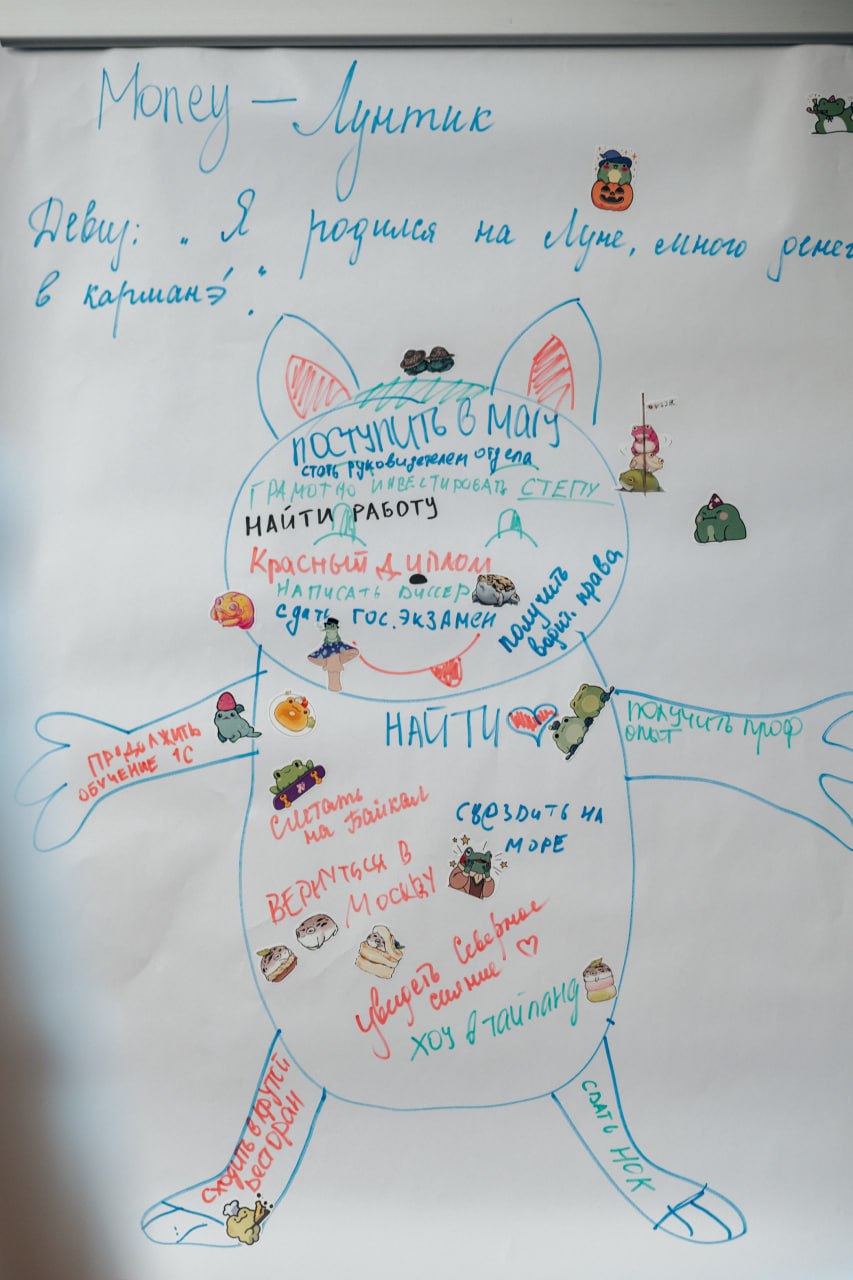 Money — Лунтик
Девиз: „Я родился на Луне, много денег
в карманэ́“.
ПОСТУПИТЬ В МАГУ
стать руководителем отдела
ГРАМОТНО ИНВЕСТИРОВАТЬ СТЕПУ
НАЙТИ РАБОТУ
Красный диплом
НАПИСАТЬ ДИССЕР
сдать ГОС. ЭКЗАМЕН
получить
водит. права
НАЙТИ
ПРОДОЛЖИТЬ
ОБУЧЕНИЕ 1С
ПОЛУЧИТЬ ПРОФ
ОПЫТ
слетать
на Байкал
СЪ@ЗДИТЬ НА
МОРЕ
ВЕРНУТЬСЯ В
МОСКВУ
увидеть Северное
сияние
ХОЧУ В тайланд
СХОДИТЬ В КРУТОЙ
РЕСТОРАН
СДАТЬ НОК